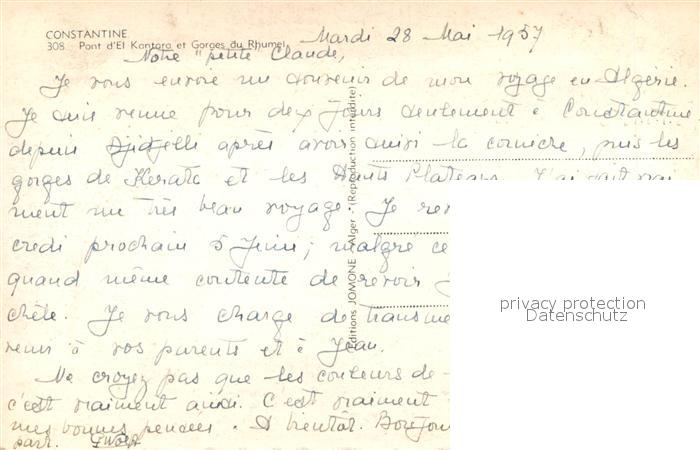 CONSTANTINE
308 Pont d'El Kantara et Gorges du Rhumel
Mardi 28 Mai 1957
Notre "petite Claude,
Je vous envoie un souvenir de mon voyage en Algérie.
Je suis venue pour deux jours seulement à Constantine
depuis Djidjelli après avoir suivi la corniche, puis les
gorges de Kerata et les Hauts Plateaux. J'ai fait vrai
ment un très beau voyage. Je re
credi prochain 5 Juin; malgré ce
quand même contente de revoir
chète. Je vous charge de transme
venir à vos parents et à Jean.
Ne croyez pas que les couleurs de
c'est vraiment ainsi. C'est vraiment
mes bonnes pensées. A bientôt. Bonjou
part.
Editions JOMONE - Alger - (Reproduction interdite)
privacy protection
Datenschutz